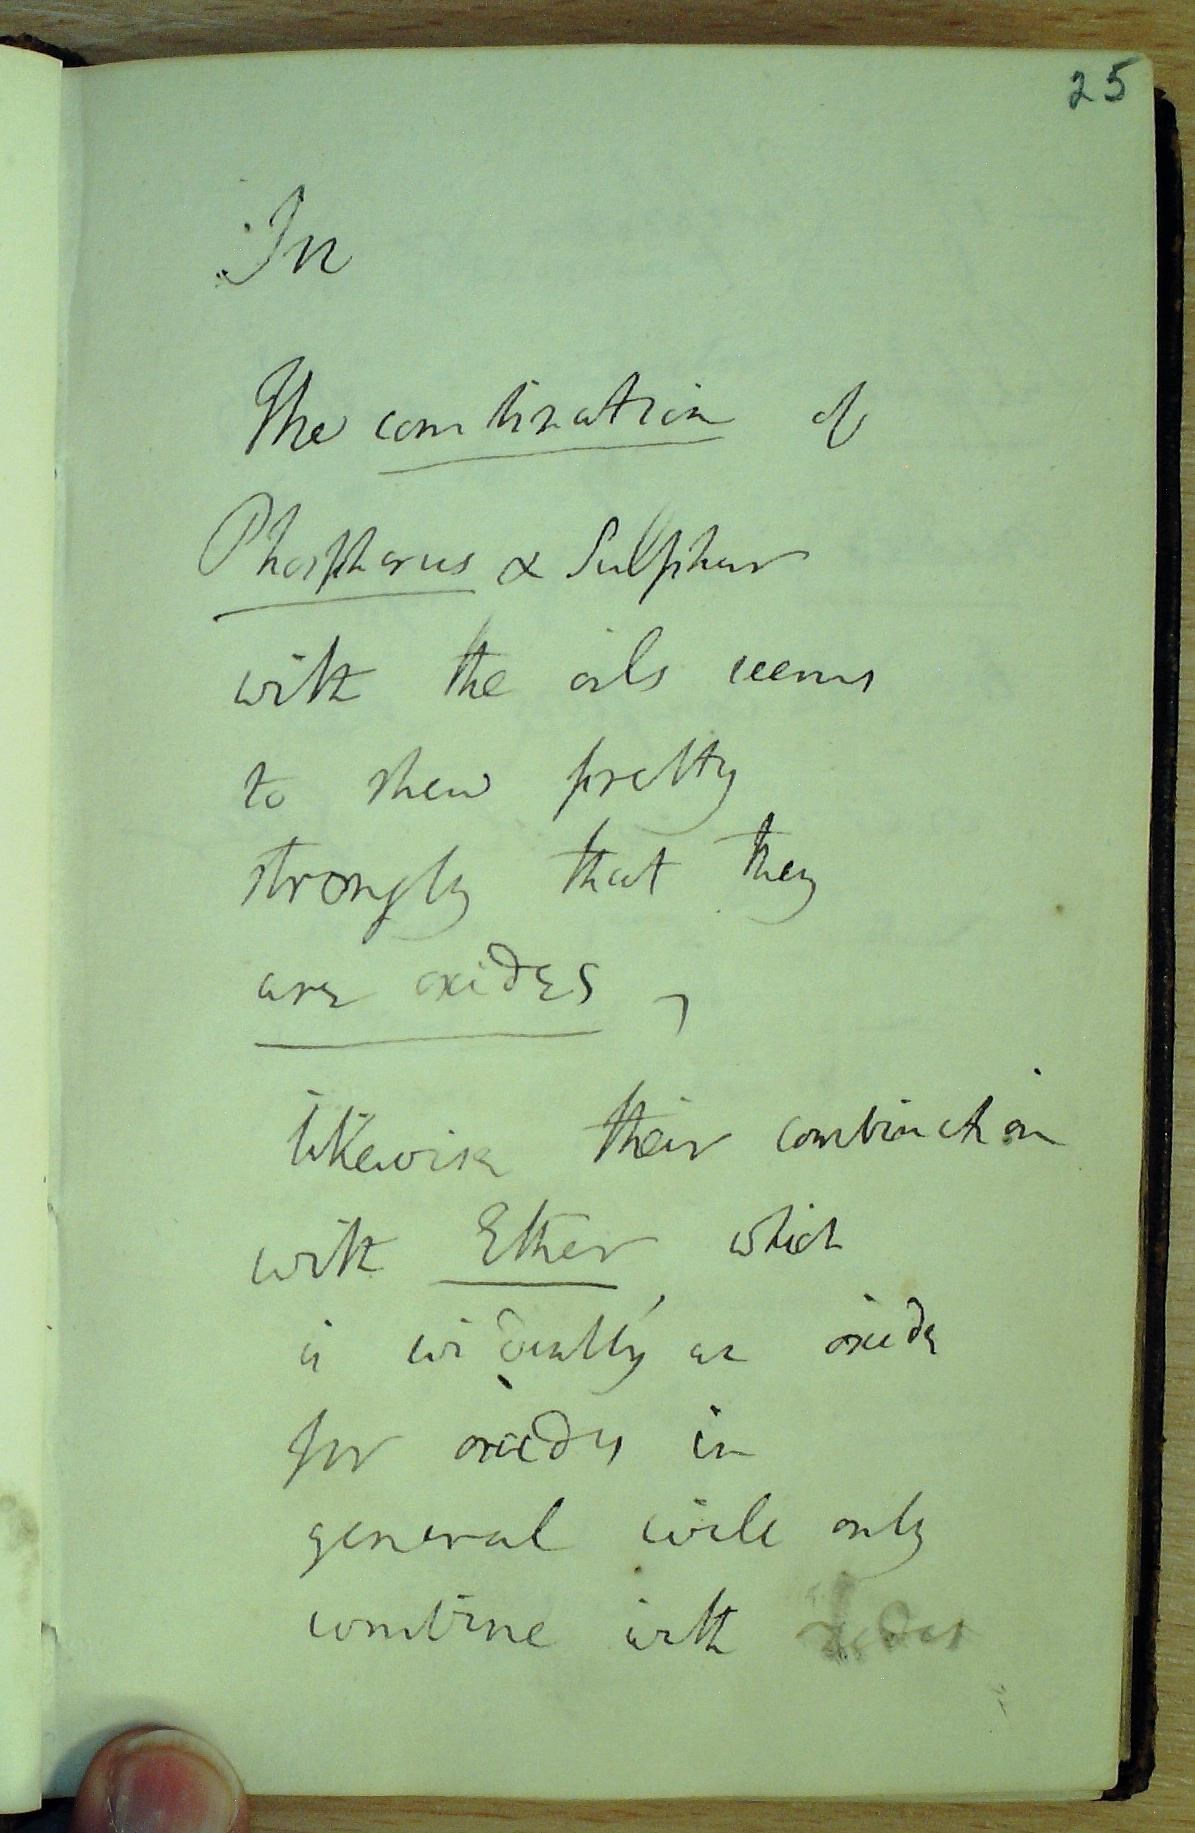 25
In
The combination of
Phosphorus & Sulphur
with the oils seems
to shew pretty
strongly that they
are oxides,
likewise their combination
with Ether, which
is evidently an oxide
for oxides in
general will only
combine with oxides